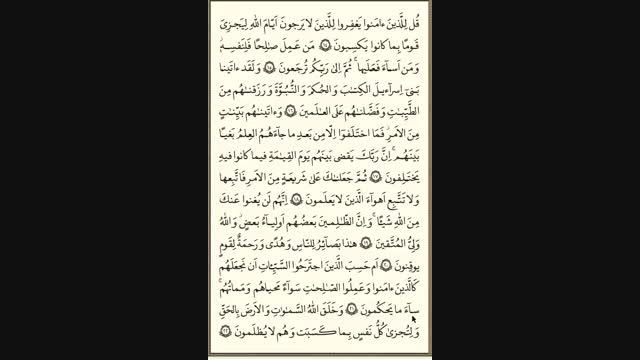 قُل لِلَّذينَ ءامَنوا يَغفِروا لِلَّذينَ لا يَرجونَ أَيّامَ اللَّهِ لِيَجزِىَ
قَومًا بِما كانوا يَكسِبونَ ﴿١٤﴾ مَن عَمِلَ صٰلِحًا فَلِنَفسِهِ ۖ
وَمَن أَساءَ فَعَلَيها ۖ ثُمَّ إِلىٰ رَبِّكُم تُرجَعونَ ﴿١٥﴾ وَلَقَد ءاتَينا
بَنى إِسرٰءيلَ الكِتٰبَ وَالحُكمَ وَالنُّبُوَّةَ وَرَزَقنٰهُم مِنَ
الطَّيِّبٰتِ وَفَضَّلنٰهُم عَلَى العٰلَمينَ ﴿١٦﴾ وَءاتَينٰهُم بَيِّنٰتٍ
مِنَ الأَمرِ ۖ فَمَا اختَلَفوا إِلّا مِن بَعدِ ما جاءَهُمُ العِلمُ بَغيًا
بَينَهُم ۚ إِنَّ رَبَّكَ يَقضى بَينَهُم يَومَ القِيٰمَةِ فيما كانوا فيهِ
يَختَلِفونَ ﴿١٧﴾ ثُمَّ جَعَلنٰكَ عَلىٰ شَريعَةٍ مِنَ الأَمرِ فَاتَّبِعها
وَلا تَتَّبِع أَهواءَ الَّذينَ لا يَعلَمونَ ﴿١٨﴾ إِنَّهُم لَن يُغنوا عَنكَ
مِنَ اللَّهِ شَيـًٔا ۚ وَإِنَّ الظّٰلِمينَ بَعضُهُم أَولِياءُ بَعضٍ ۖ وَاللَّهُ
وَلِىُّ المُتَّقينَ ﴿١٩﴾ هٰذا بَصٰئِرُ لِلنّاسِ وَهُدًى وَرَحمَةٌ لِقَومٍ
يوقِنونَ ﴿٢٠﴾ أَم حَسِبَ الَّذينَ اجتَرَحُوا السَّيِّـٔاتِ أَن نَجعَلَهُم
كَالَّذينَ ءامَنوا وَعَمِلُوا الصّٰلِحٰتِ سَواءً مَحياهُم وَمَماتُهُم ۚ
ساءَ ما يَحكُمونَ ﴿٢١﴾ وَخَلَقَ اللَّهُ السَّمٰوٰتِ وَالأَرضَ بِالحَقِّ
وَلِتُجزىٰ كُلُّ نَفسٍ بِما كَسَبَت وَهُم لا يُظلَمونَ ﴿٢٢﴾